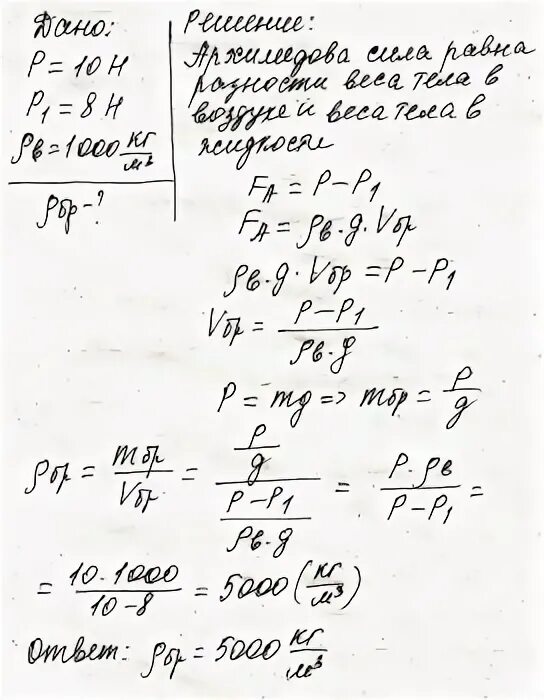 Дано:
P = 10 Н
P₁ = 8 Н
ρв = 1000 кг/м³
ρбр - ?
Решение:
Архимедова сила равна
разности веса тела в
воздухе и веса тела в
жидкости
F_A = P - P₁
F_A = ρв · g · Vбр
ρв · g · Vбр = P - P₁
Vбр = (P - P₁)/(ρв · g)
P = mg => mбр = P/g
ρбр = mбр/Vбр = (P/g)/((P - P₁)/(ρв · g)) = (P · ρв)/(P - P₁) =
= (10 · 1000)/(10 - 8) = 5000 (кг/м³)
Ответ: ρбр = 5000 кг/м³